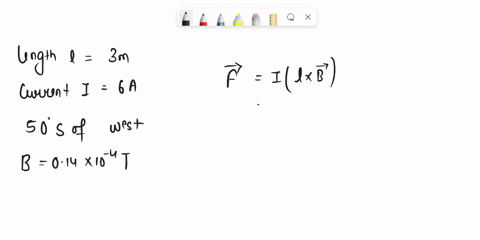 length l = 3m
Current I = 6A
50° S of west
B = 0.14 × 10⁻⁴ T
F⃗ = I ( l × B⃗ )